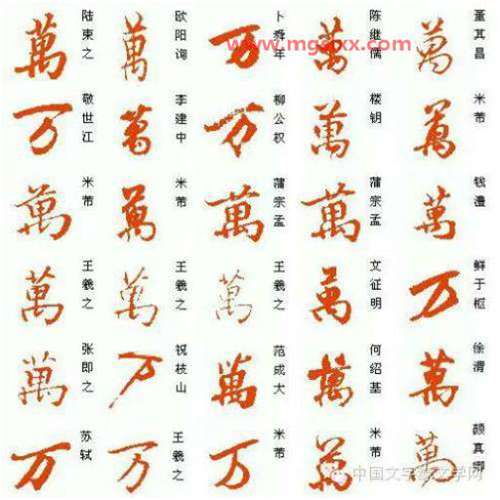 萬 陆柬之
萬 欧阳询
万 卜舜年
萬 陈继儒
萬 董其昌
万 敬世江
萬 李建中
万 柳公权
萬 楼钥
萬 米芾
萬 米芾
萬 米芾
萬 蒲宗孟
萬 蒲宗孟
萬 钱澧
萬 王羲之
萬 王羲之
萬 王羲之
萬 文征明
万 鲜于枢
萬 张即之
万 祝枝山
萬 范成大
萬 何绍基
萬 徐渭
万 苏轼
万 王羲之
万 米芾
萬 米芾
萬 颜真卿
中国文字 文学网